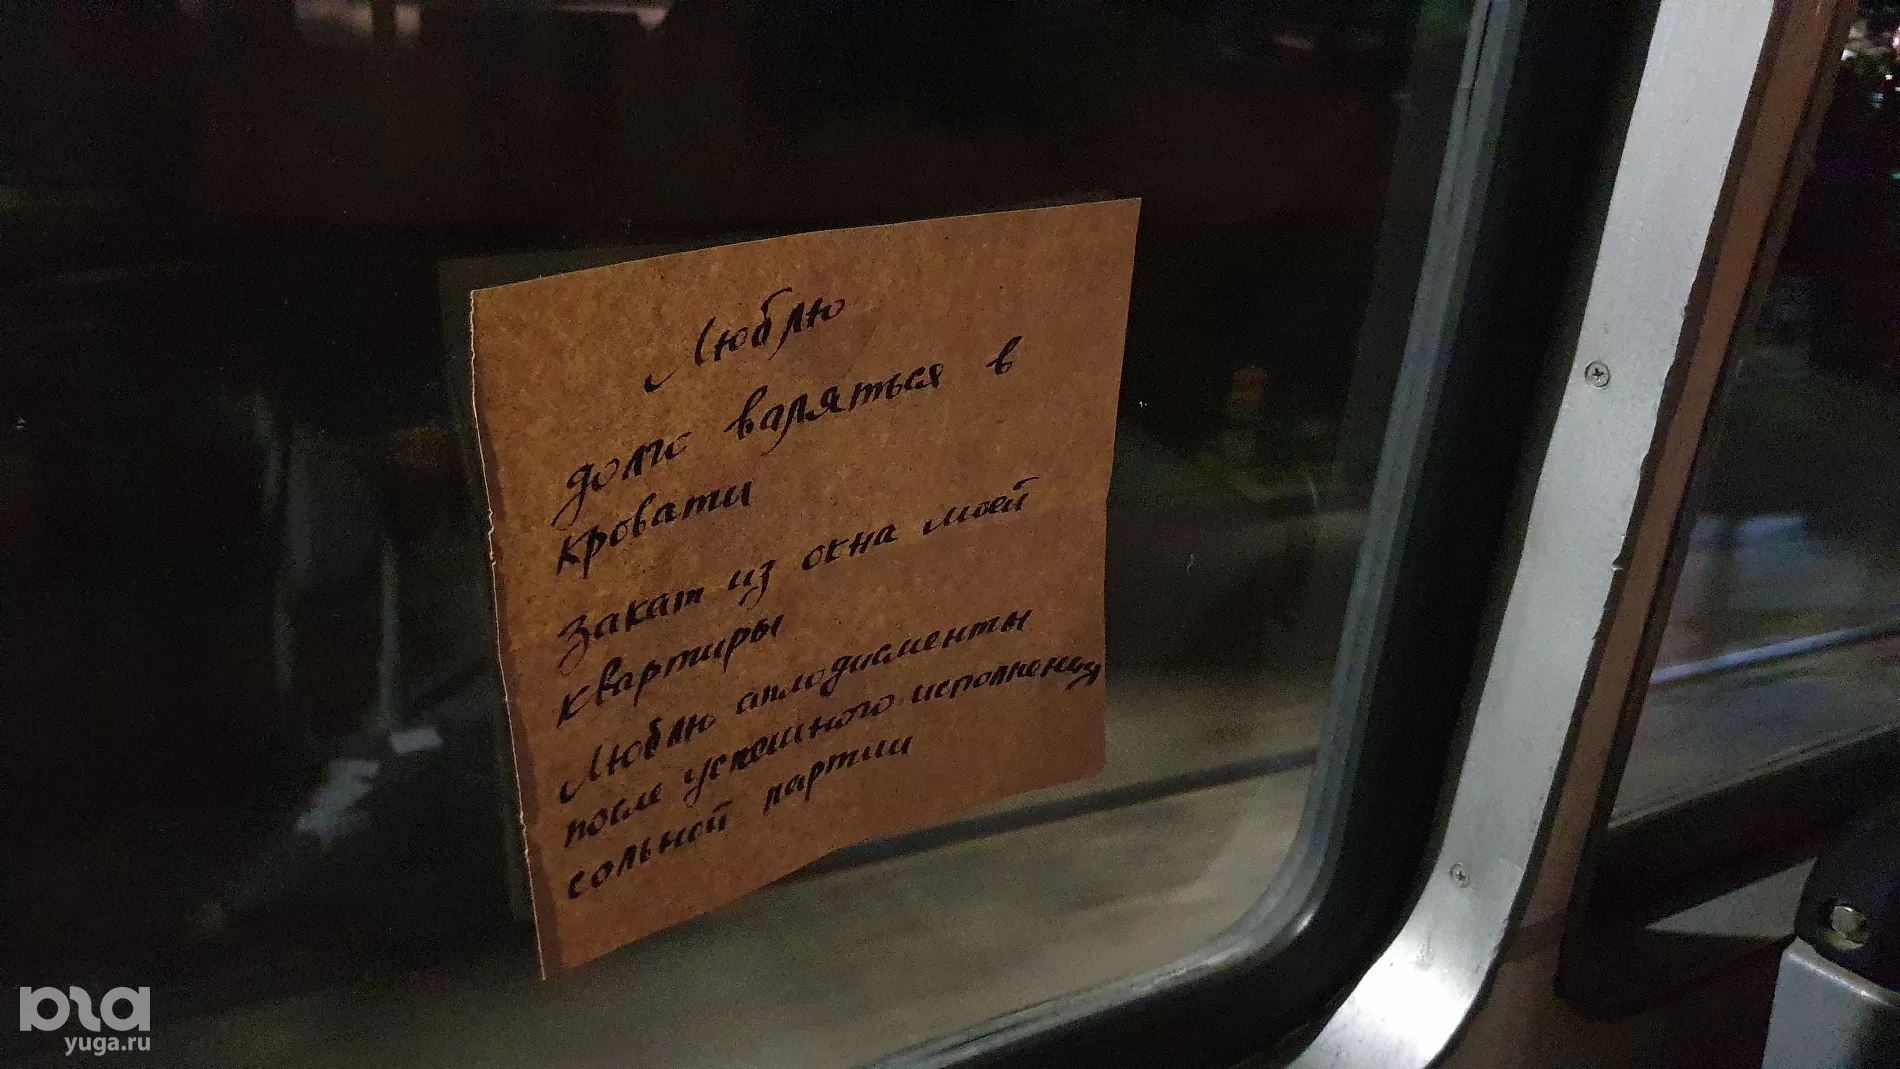 Люблю
долго валяться в
кровати
Закат из окна моей
квартиры
Люблю аплодисменты
после успешного исполнения
сольной партии
юга
yuga.ru